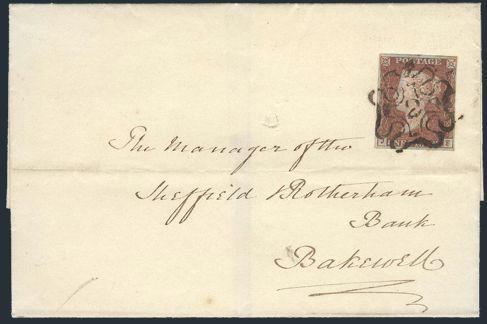 POSTAGE
The Manager of the
Sheffield & Rotherham
Bank
Bakewell